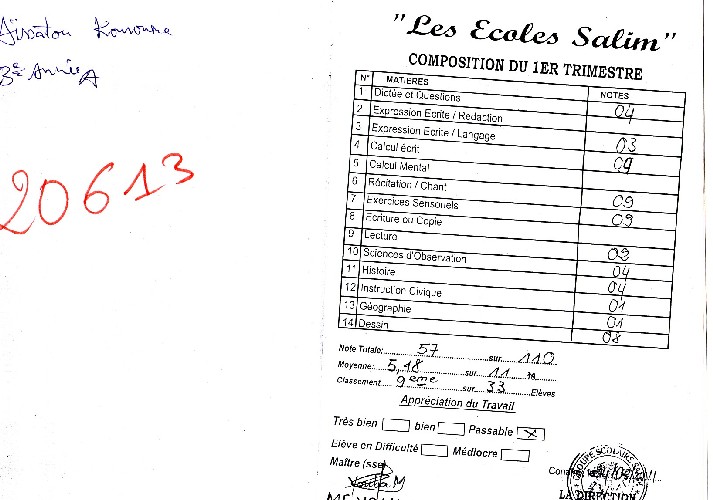 Aïssatou Kourouma
3e Année A
20613
"Les Ecoles Salim"
COMPOSITION DU 1ER TRIMESTRE
N° MATIERES NOTES
1 Dictée et Questions 04
2 Expression Ecrite / Rédaction
3 Expression Ecrite / Langage 03
4 Calcul écrit 09
5 Calcul Mental
6 Récitation / Chant 09
7 Exercices Sensoriels 09
8 Ecriture ou Copie
9 Lecture 09
10 Sciences d'Observation 04
11 Histoire 04
12 Instruction Civique 01
13 Géographie 01
14 Dessin 08
Note Totale: 57 sur 110
Moyenne: 5,18 sur 11
Classement 9eme sur 33 Elèves
Appréciation du Travail
Très bien bien Passable X
Elève en Difficulté Médiocre
Maître (sse)
LA DIRECTION